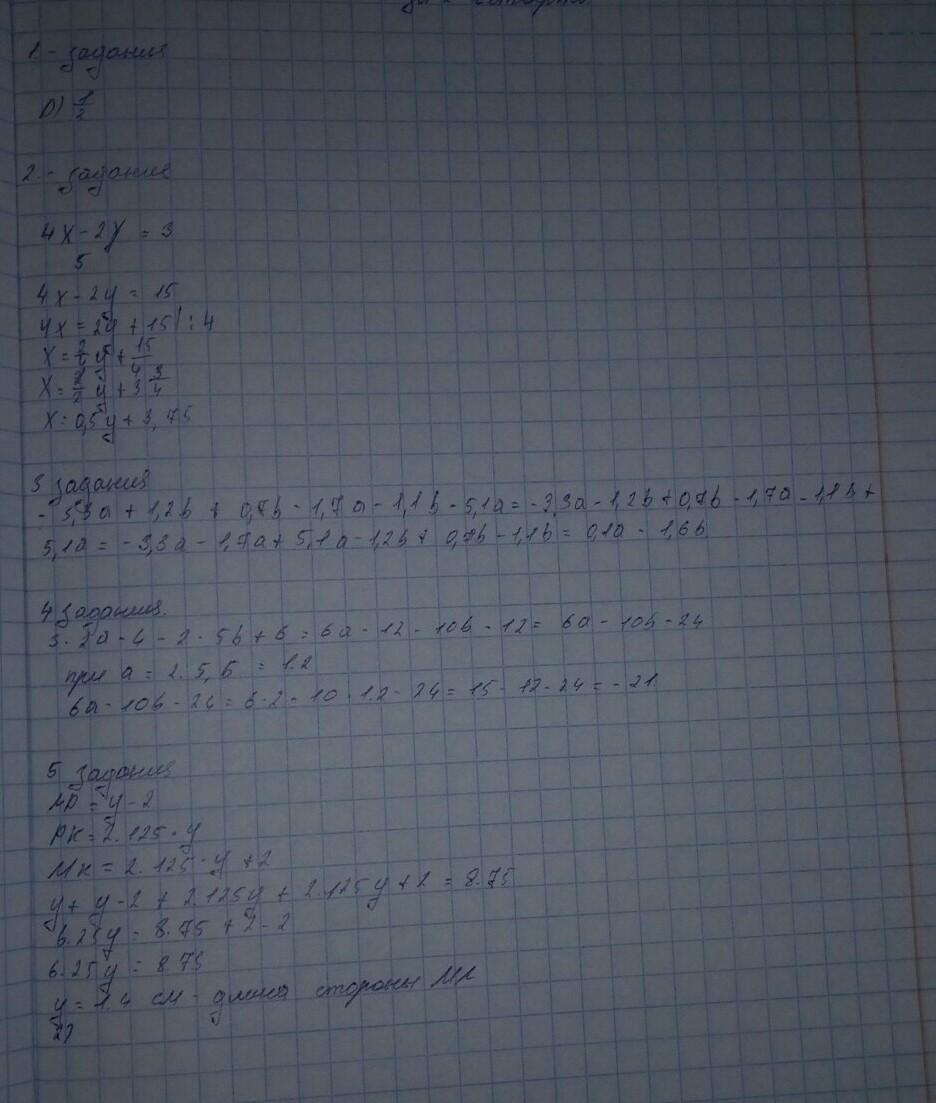 четверти
1 - задания
D) 1/2
2 - задания
4x - 2y = 3
5
4x - 2y = 15
4x = 2y + 15 | : 4
x = 2/4 y + 15/4
x = 1/2 y + 3 3/4
x = 0,5y + 3,75
3 задания
- 3,3a + 1,2b + 0,7b - 1,7a - 1,1b - 5,1a = -3,3a - 1,2b + 0,7b - 1,7a - 1,1b +
5,1a = -3,3a - 1,7a + 5,1a - 1,2b + 0,7b - 1,1b = 0,1a - 1,6b
4 задания.
3 · 2a - 4 - 2 · 5b + 6 = 6a - 12 - 10b - 12 = 6a - 10b - 24
при a = 2.5, b = 1.2
6a - 10b - 24 = 6 · 2 - 10 · 1.2 - 24 = 15 - 12 - 24 = -21.
5 задания
MP = y - 2
PK = 2.125 · y
MK = 2.125 · y + 2
y + y - 2 + 2.125y + 2.125y + 2 = 8.75
6.25y = 8.75 + 2 - 2
6.25y = 8.75
y = 1.4 см - длина стороны